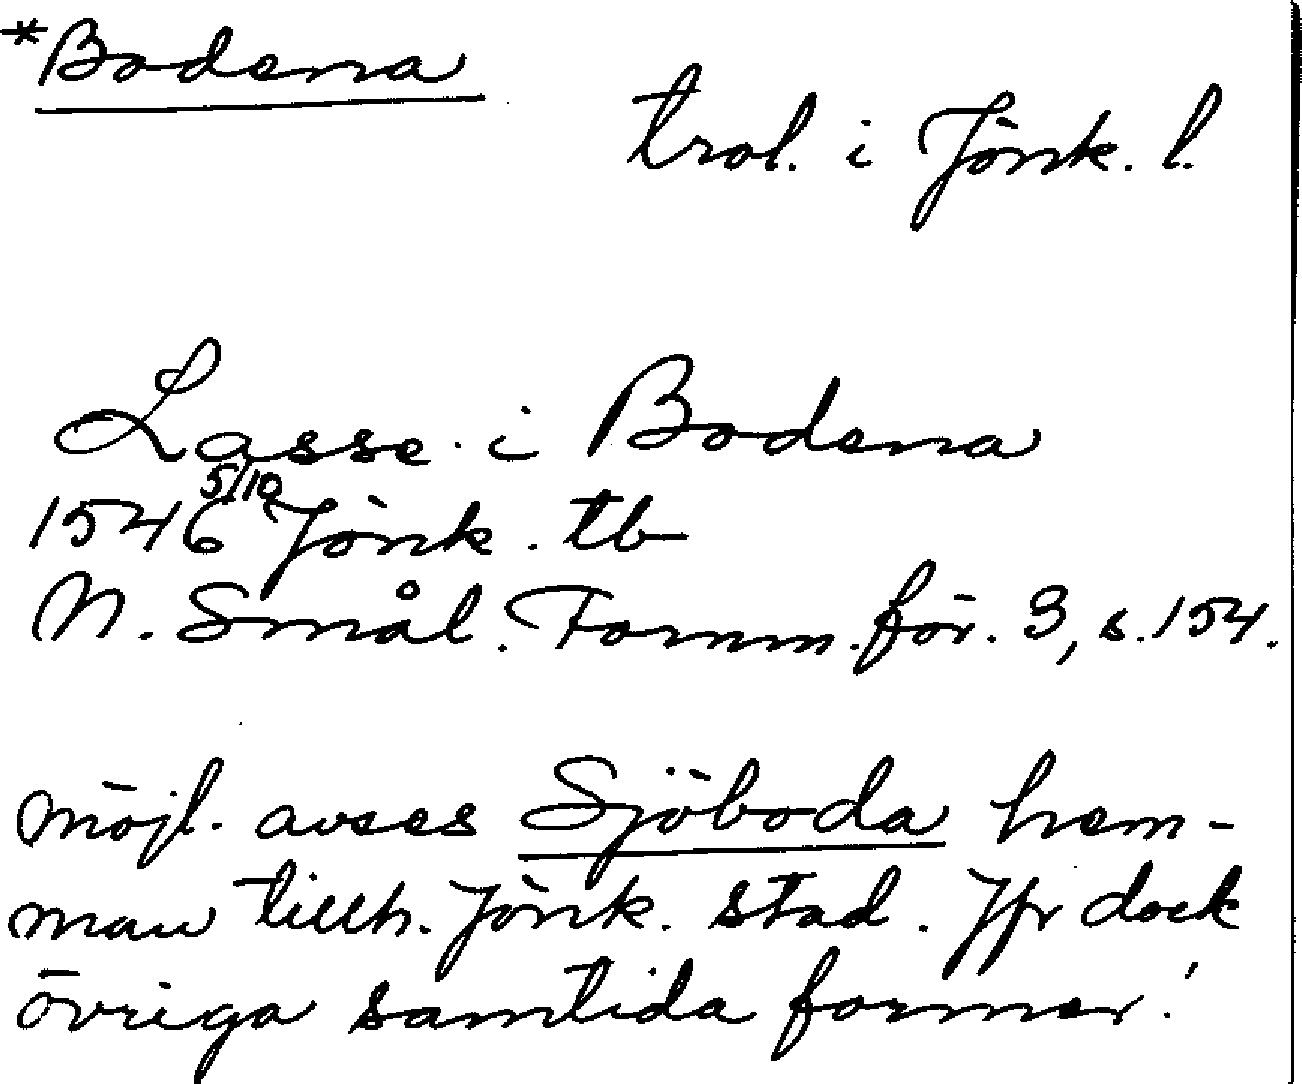 *Bodena
trol. i Jönk. l.
Lasse i Bodena
1546 5/10 Jönk. tb
N. Smål. Fornm. för. 3, s. 154.
möjl. avses Sjöboda hem-
man tillh. Jönk. stad. Jfr dock
övriga samtida former!